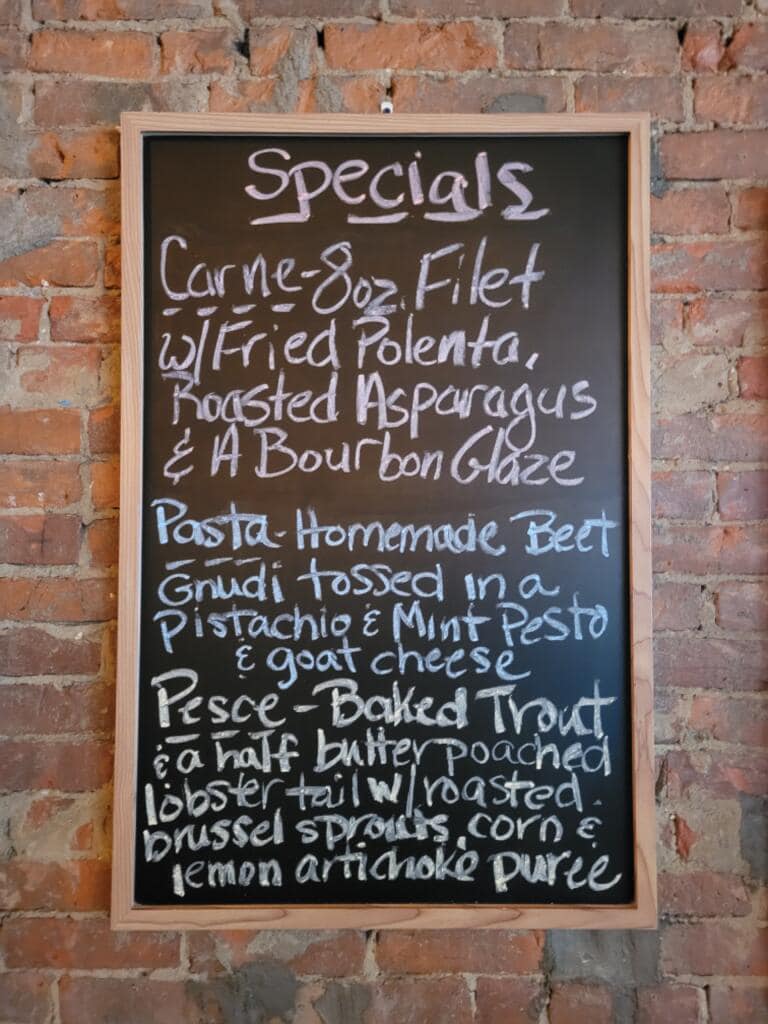 Specials
Carne-8oz. Filet
w/Fried Polenta,
Roasted Asparagus
& A Bourbon Glaze
Pasta-Homemade Beet
Gnudi tossed in a
Pistachio & Mint Pesto
& goat cheese
Pesce-Baked Trout
& a half butter poached
lobster tail w/roasted
brussel sprouts, corn &
lemon artichoke puree